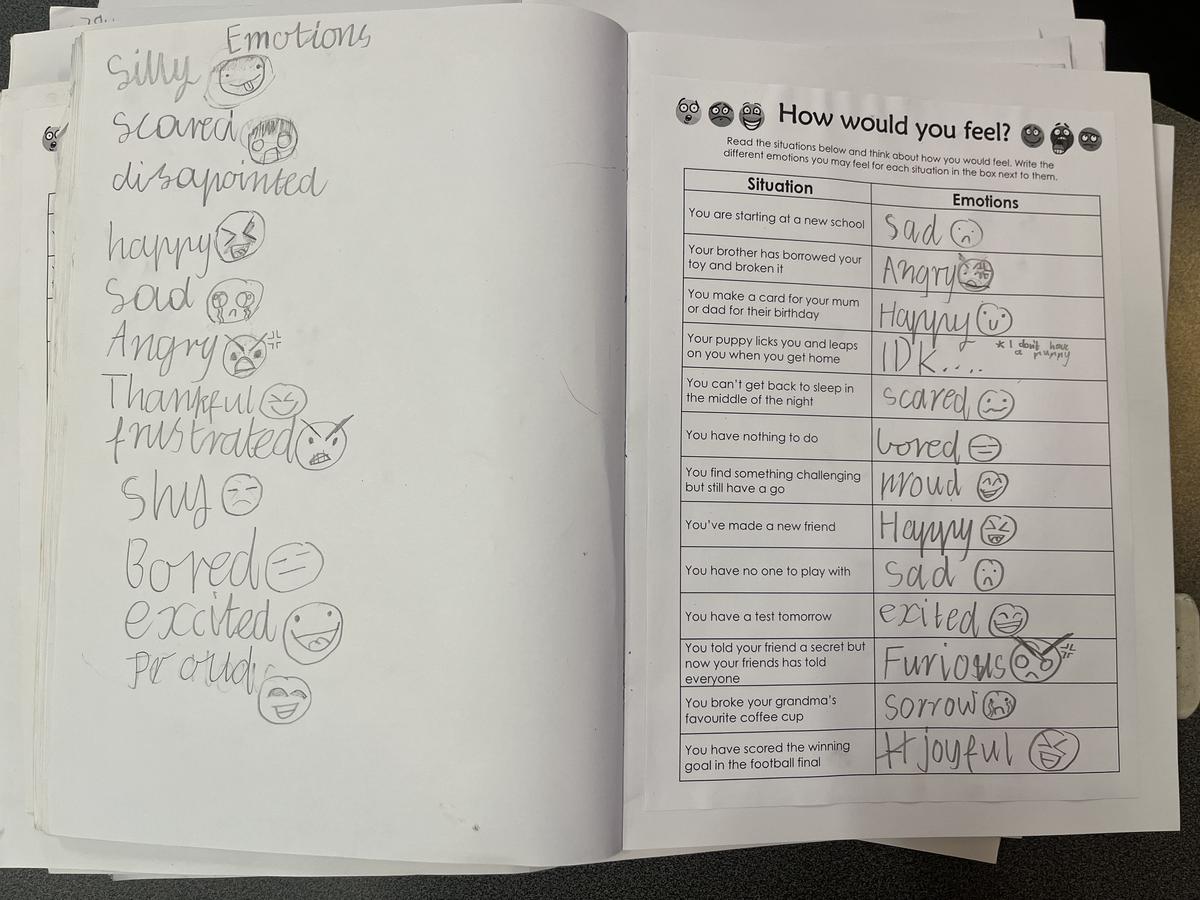 Emotions
Silly
scared
disapointed
happy
Sad
Angry
Thankful
frustrated
Shy
Bored
excited
proud
How would you feel?
Read the situations below and think about how you would feel. Write the
different emotions you may feel for each situation in the box next to them.
Situation Emotions
You are starting at a new school Sad
Your brother has borrowed your
toy and broken it
Angry
You make a card for your mum
or dad for their birthday
Happy
Your puppy licks you and leaps
on you when you get home
IDK....
* I don't have
a puppy
You can't get back to sleep in
the middle of the night
scared
You have nothing to do bored
You find something challenging
but still have a go
proud
You've made a new friend Happy
You have no one to play with Sad
You have a test tomorrow exited
You told your friend a secret but
now your friends has told
everyone
Furious
You broke your grandma's
favourite coffee cup
sorrow
You have scored the winning
goal in the football final
joyful